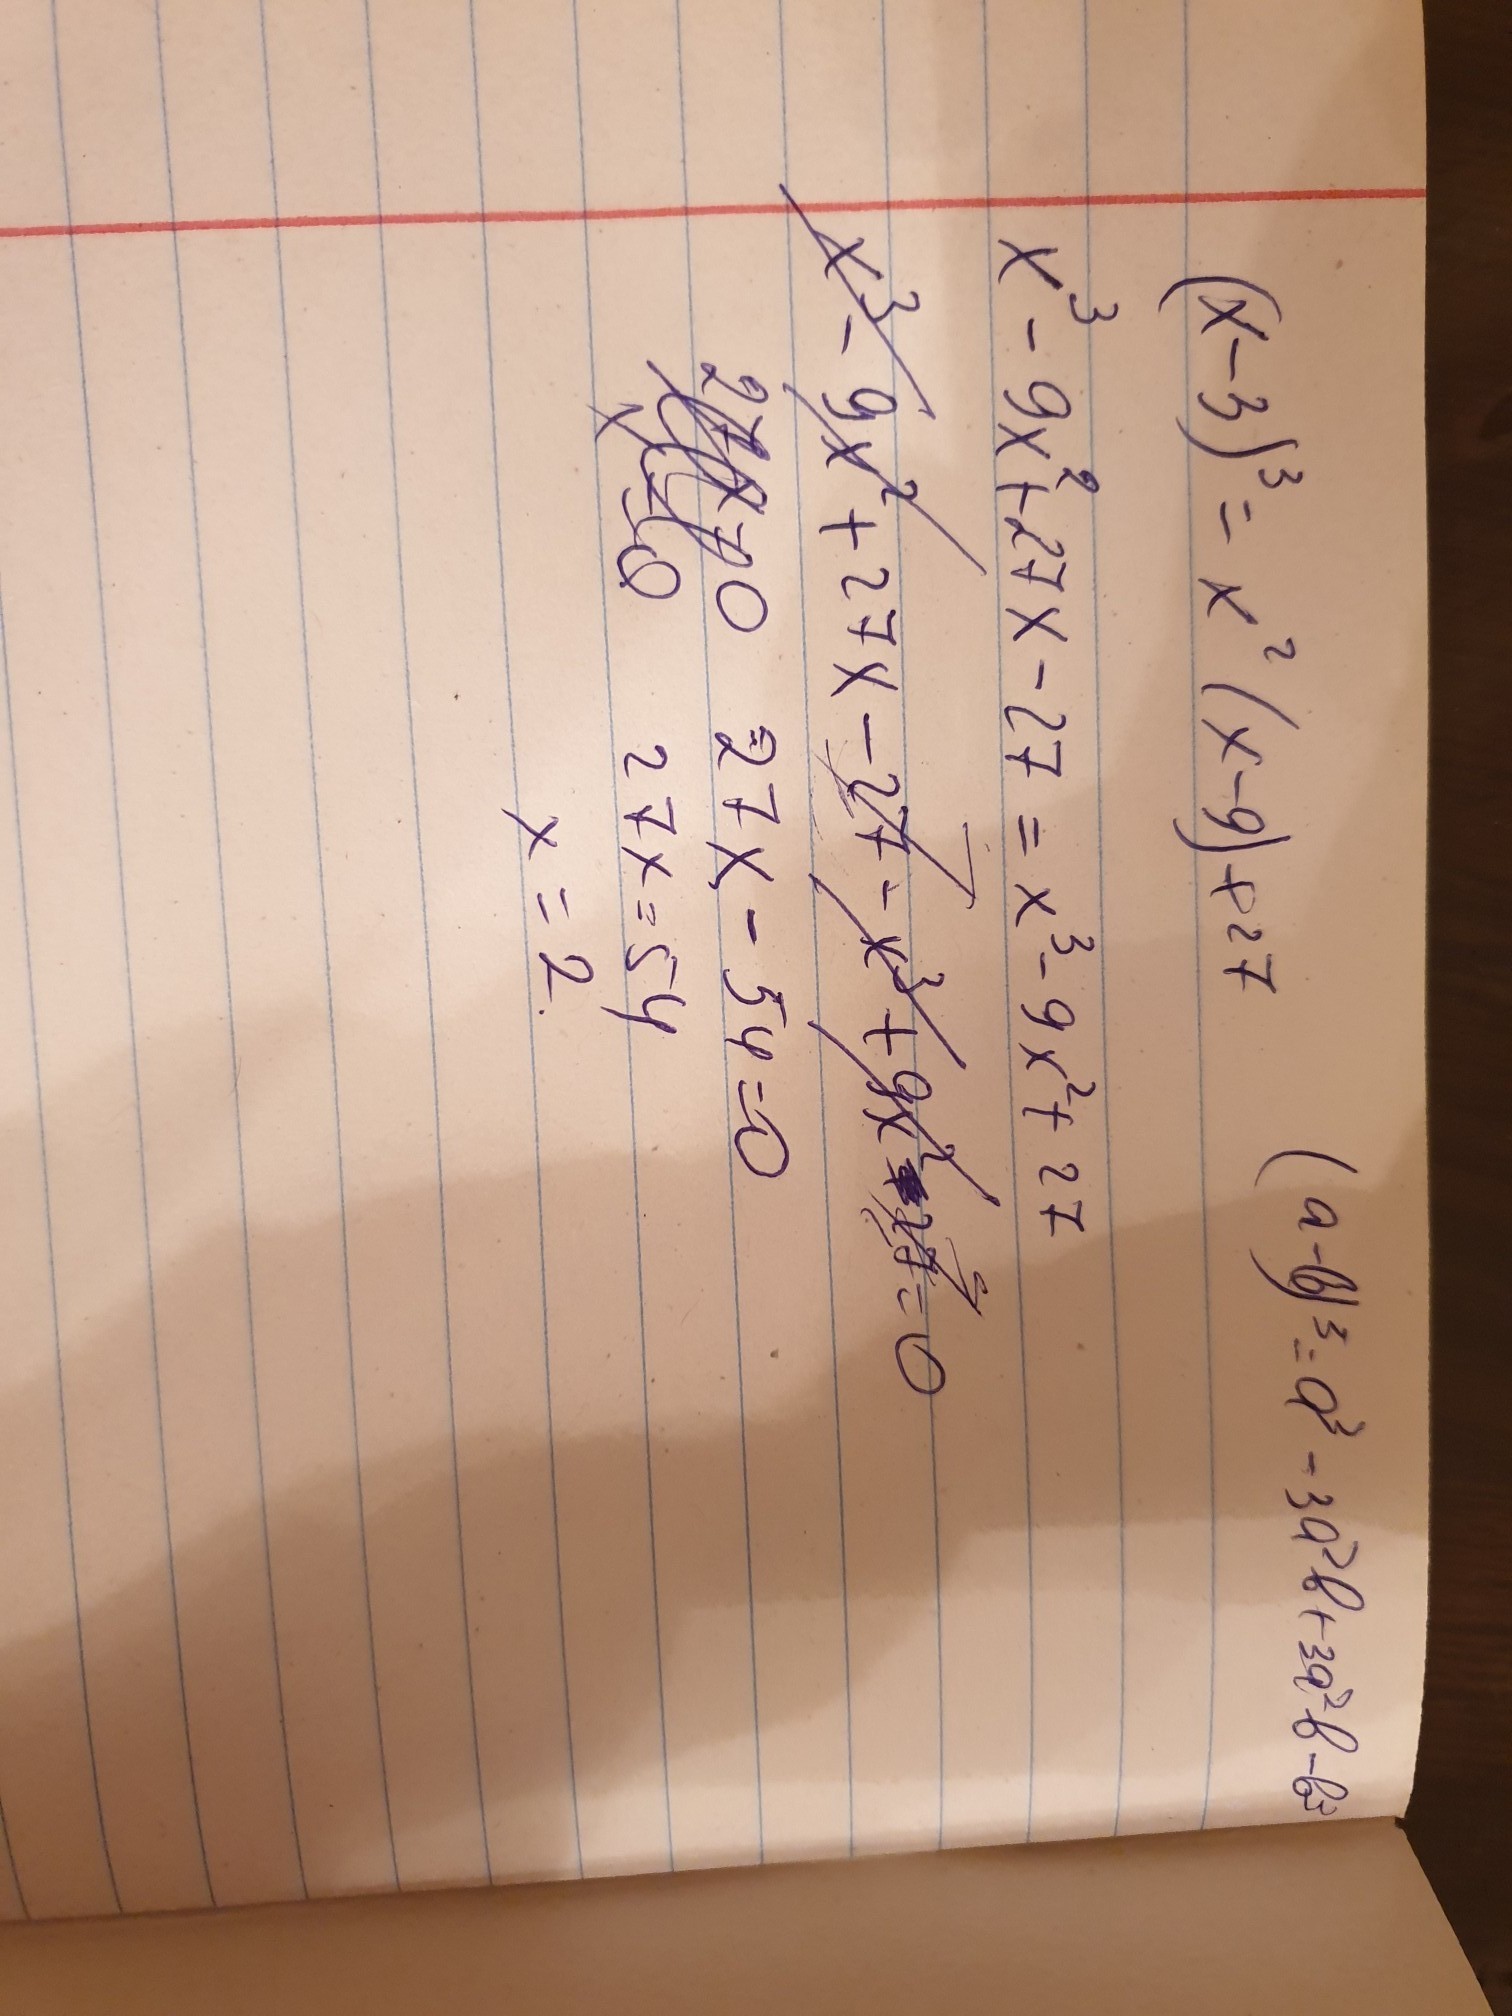 (x-3)³ = x² (x-9)+27 (a-b)³ = a³ - 3a²b + 3a²b - b³
x³ - 9x² + 27x - 27 = x³ - 9x² + 27
x³ - 9x² + 27x - 27 - x³ + 9x² = 0
27x = 0 27x - 54 = 0
x = 0 27x = 54
x = 2.